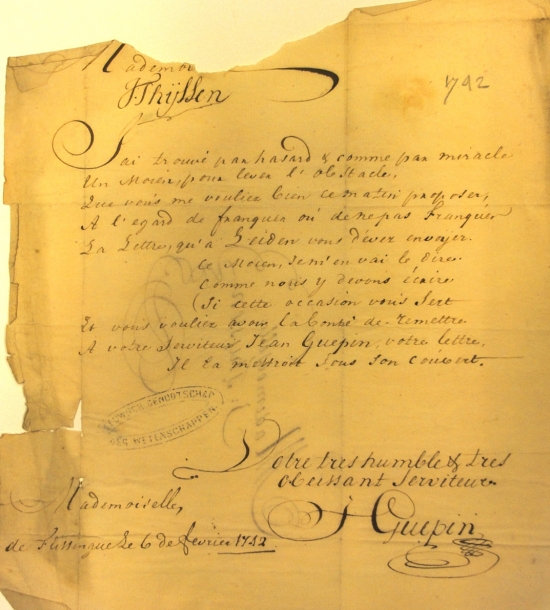 Mademoi
J Thÿssen
1742
J'ai trouvé par hasard & comme par miracle
Un Moien, pour lever l'obstacle,
Que vous me vouliez bien ce matin proposer,
A l'egard de franquer ou de ne pas franquer
La Lettre, qu'a Leiden vous devez envoyer.
Ce Moien, je m'en vai le dire.
Comme nous y devons écrire
(Si cette occasion vous sert
Et vous vouliez avoir la bonté de remettre
A votre serviteur Jean Guepin, votre lettre,
Il la mettroit sous son couvert.
ZEEUWSCH GENOOTSCHAP
DER WETENSCHAPPEN
Votre tres humble & tres
obeissant serviteur
J Guepin
Mademoiselle,
de Flissingue le 6 de fevrier 1742